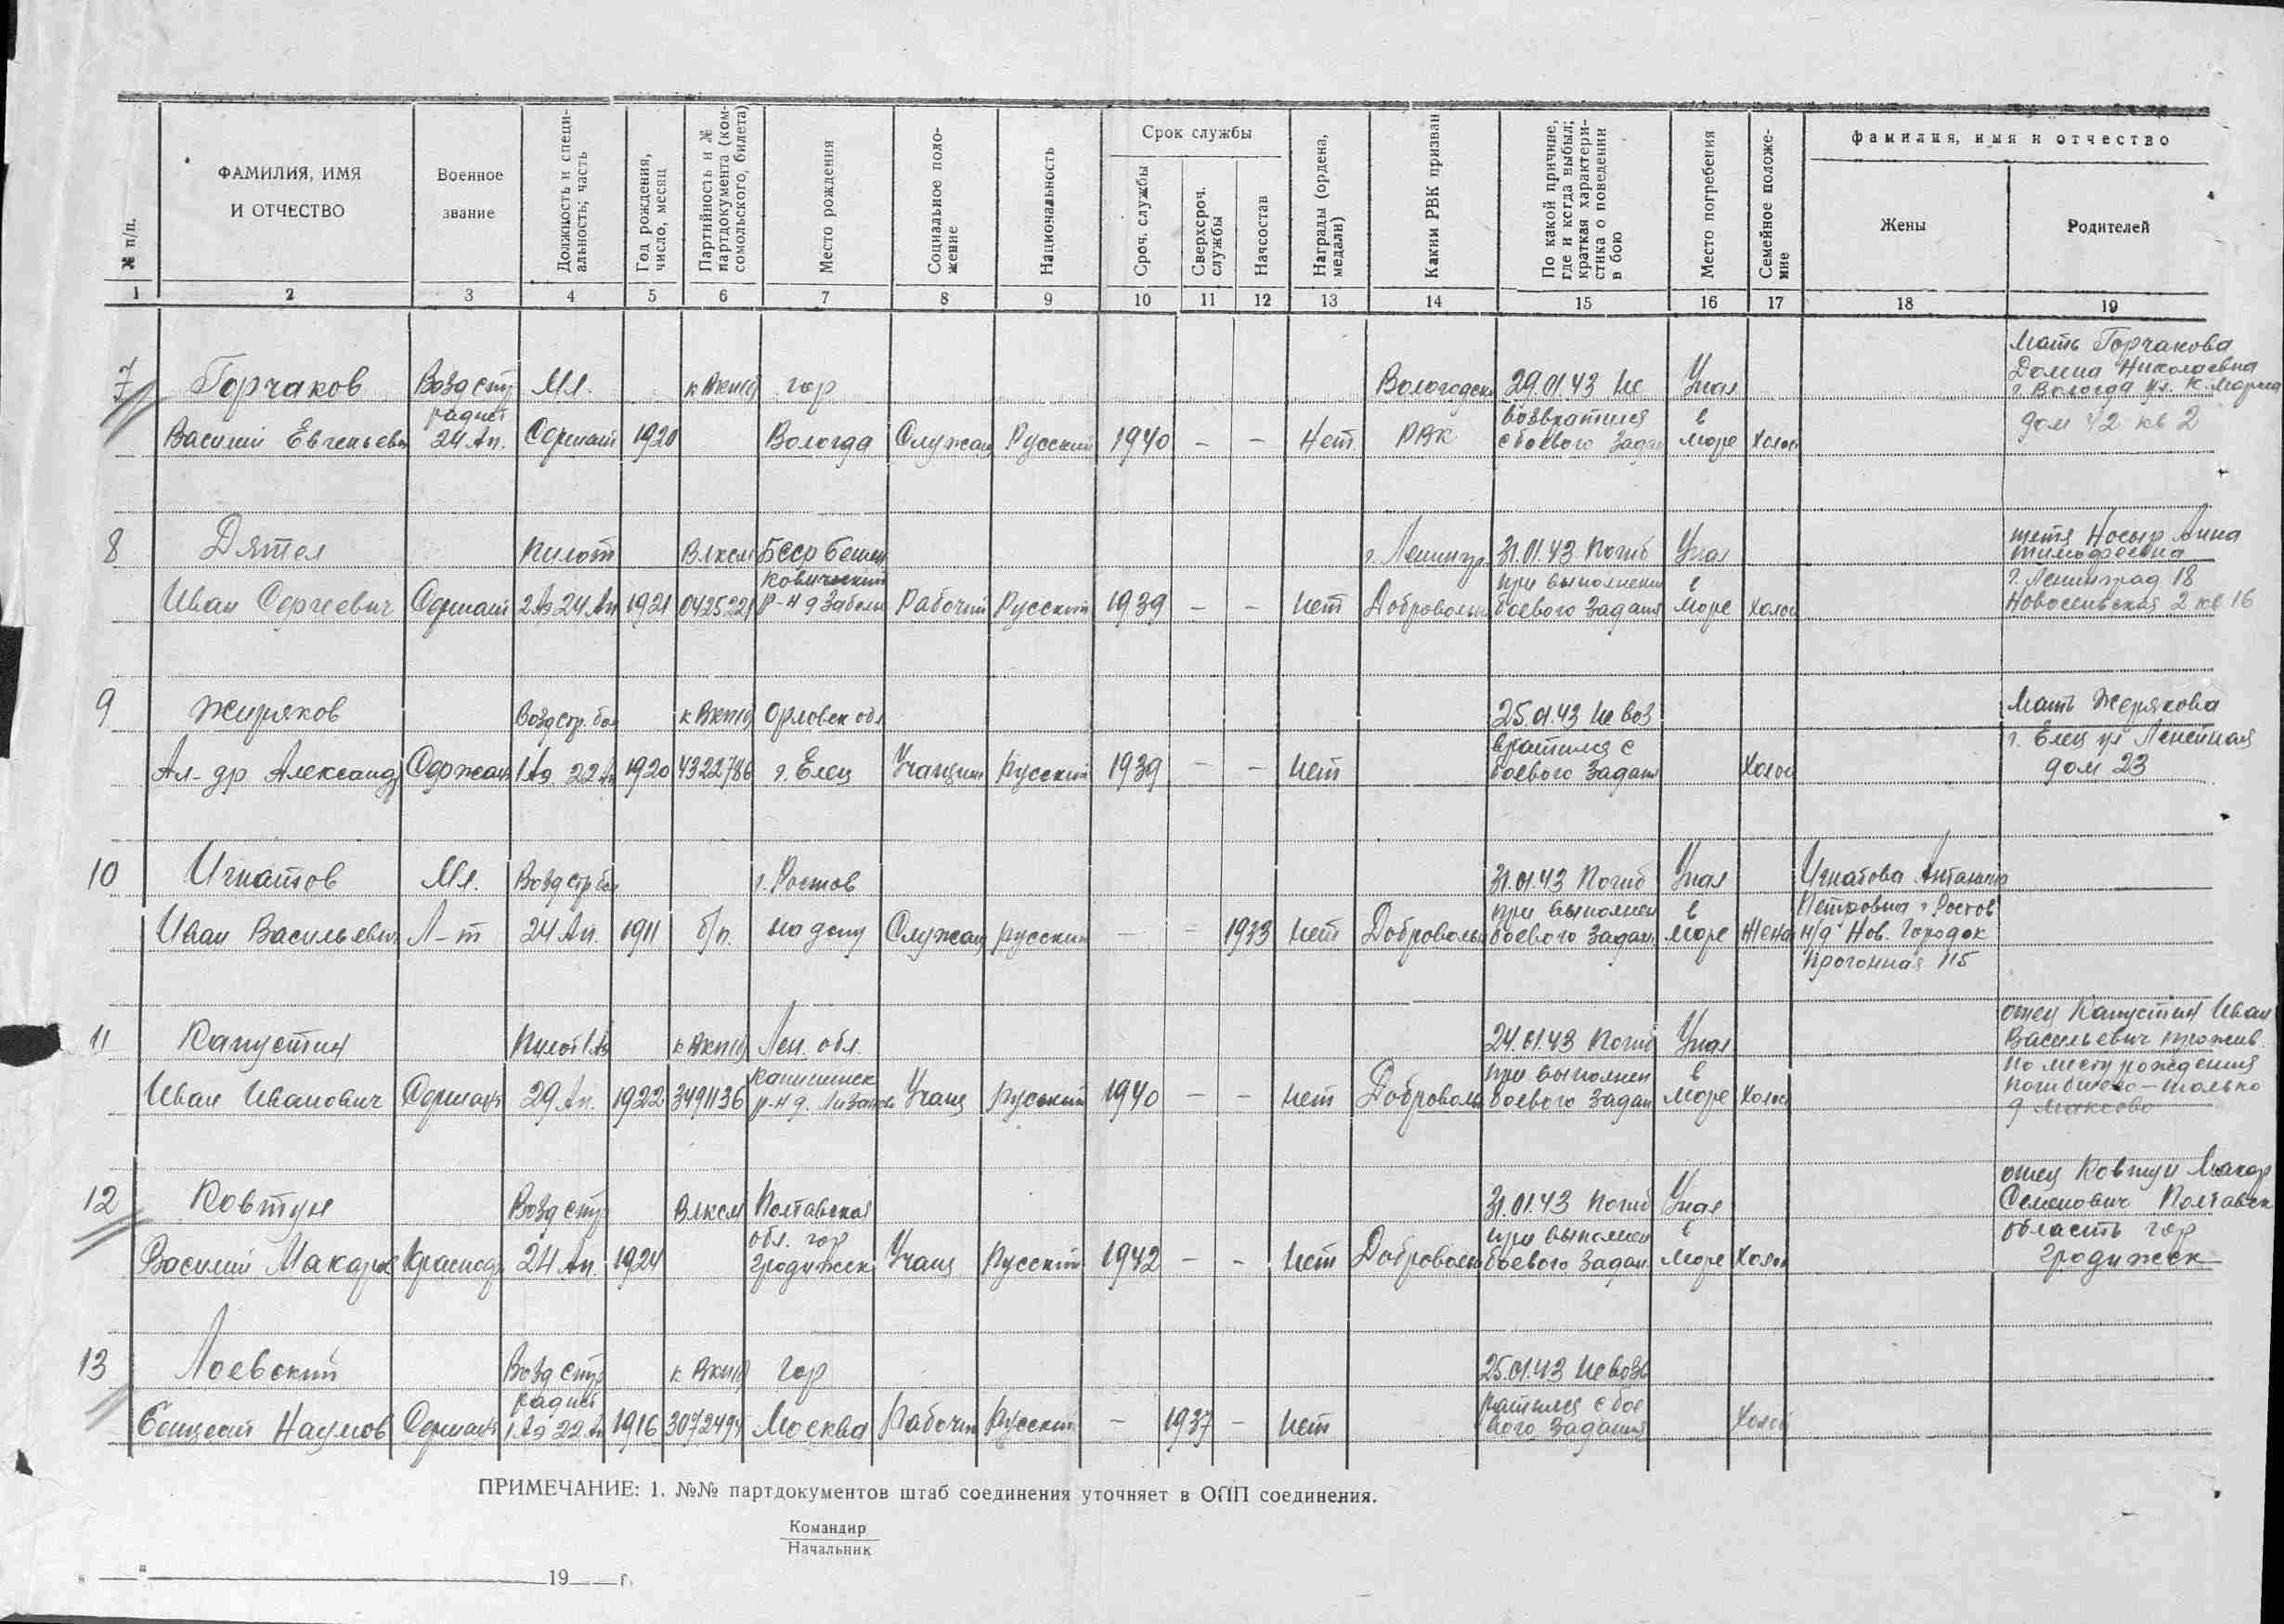 № п/п.
ФАМИЛИЯ, ИМЯ
И ОТЧЕСТВО
Военное
звание
Должность и специ-
альность; часть
Год рождения,
число, месяц
Партийность и №
партдокумента (ком-
сомольского, билета)
Место рождения
Социальное поло-
жение
Национальность
Срок службы
Сроч. службы
Сверхсроч.
службы
Начсостав
Награды (ордена,
медали)
Каким РВК призван
По какой причине,
где и когда выбыл;
краткая характери-
стика о поведении
в бою
Место погребения
Семейное положе-
ние
фамилия, имя и отчество
Жены
Родителей
1 2 3 4 5 6 7 8 9 10 11 12 13 14 15 16 17 18 19
7
Горчаков
Василий Евгеньеви
Возд стр
радист
24 Ап.
Мл.
Сержант
1920
к ВКП(б)
гор
Вологда
Служащ
Русский
1940
–
–
Нет
Вологодски
РВК
29.01.43 Не
возвратился
с боевого задан
Упал
в
море
Холост
Мать Горчакова
Домна Николаевна
г. Вологда ул. К. Маркса
дом 42 кв 2
8
Дятел
Иван Сергеевич
Сержант
Пилот
2 Аэ 24 Ап
1921
Влксм
0425221
БССР Бешен
ковический
р-н д Заболи
Рабочий
Русский
1939
–
–
нет
г. Ленингр.
Добровольн
31.01.43 Погиб
при выполнени
боевого задания
Упал
в
море
холос
тетя Носыр Анна
Тимофеевна
г. Ленинград 18
Новосивская 2 кв 16
9
Жиряков
Ал-др Александр
Сержант
Возд стр. бом
1 Аэ 22 Ап
1920
к ВКП(б)
4322786
Орловск обл
г. Елец
Учащий
Русский
1939
–
–
нет
25.01.43 Не воз
вратился с
боевого задан
Холос
Мать Жерякова
г. Елец ул Ленейная
дом 23
10
Игнатов
Иван Васильевич
Мл.
Л-т
Возд стр бом
24 Ап.
1911
б/п.
г. Ростов
на дону
Служащ
русский
–
–
1933
нет
Добровольн
31.01.43 Погиб
при выполнен
боевого задан.
Упал
в
море
Жена
Игнатова Антанина
Петровна г Ростов
н/д Нов. Городок
Прогонная 115
11
Капустин
Иван Иванович
Сержант
Пилот 1 Аэ
29 Ап.
1922
к ВКП(б)
3491136
Лен. обл.
Учащ
русский
1940
–
–
нет
Доброволь
24.01.43 Погиб
при выполнен
боевого задан
Упал
в
море
Холос
отец Капустин Иван
Васильевич прожив.
по месту рождения
погибшего — только
д Максово
12
Ковтун
Василий Макаров
Краснофл
Возд стр
24 Ап.
1924
Влксм
Полтавская
обл. гор
Градижск
Учащ
Русский
1942
–
–
нет
Доброволь
31.01.43 Погиб
при выполнен
боевого задан.
Упал
в
море
Холос
отец Ковтун Макар
Семенович Полтавск
область гор
Градижск
13
Лоевский
Наумов
Сержант
Возд стр
радист
1 Аэ 22 Ап
1916
к ВКП(б)
3072494
гор
Москва
Рабочий
Русский
–
1937
–
нет
25.01.43 Не возв
ратился с бое
вого задания
Холос
ПРИМЕЧАНИЕ: 1. №№ партдокументов штаб соединения уточняет в ОПП соединения.
Командир
Начальник
" " 19 г.